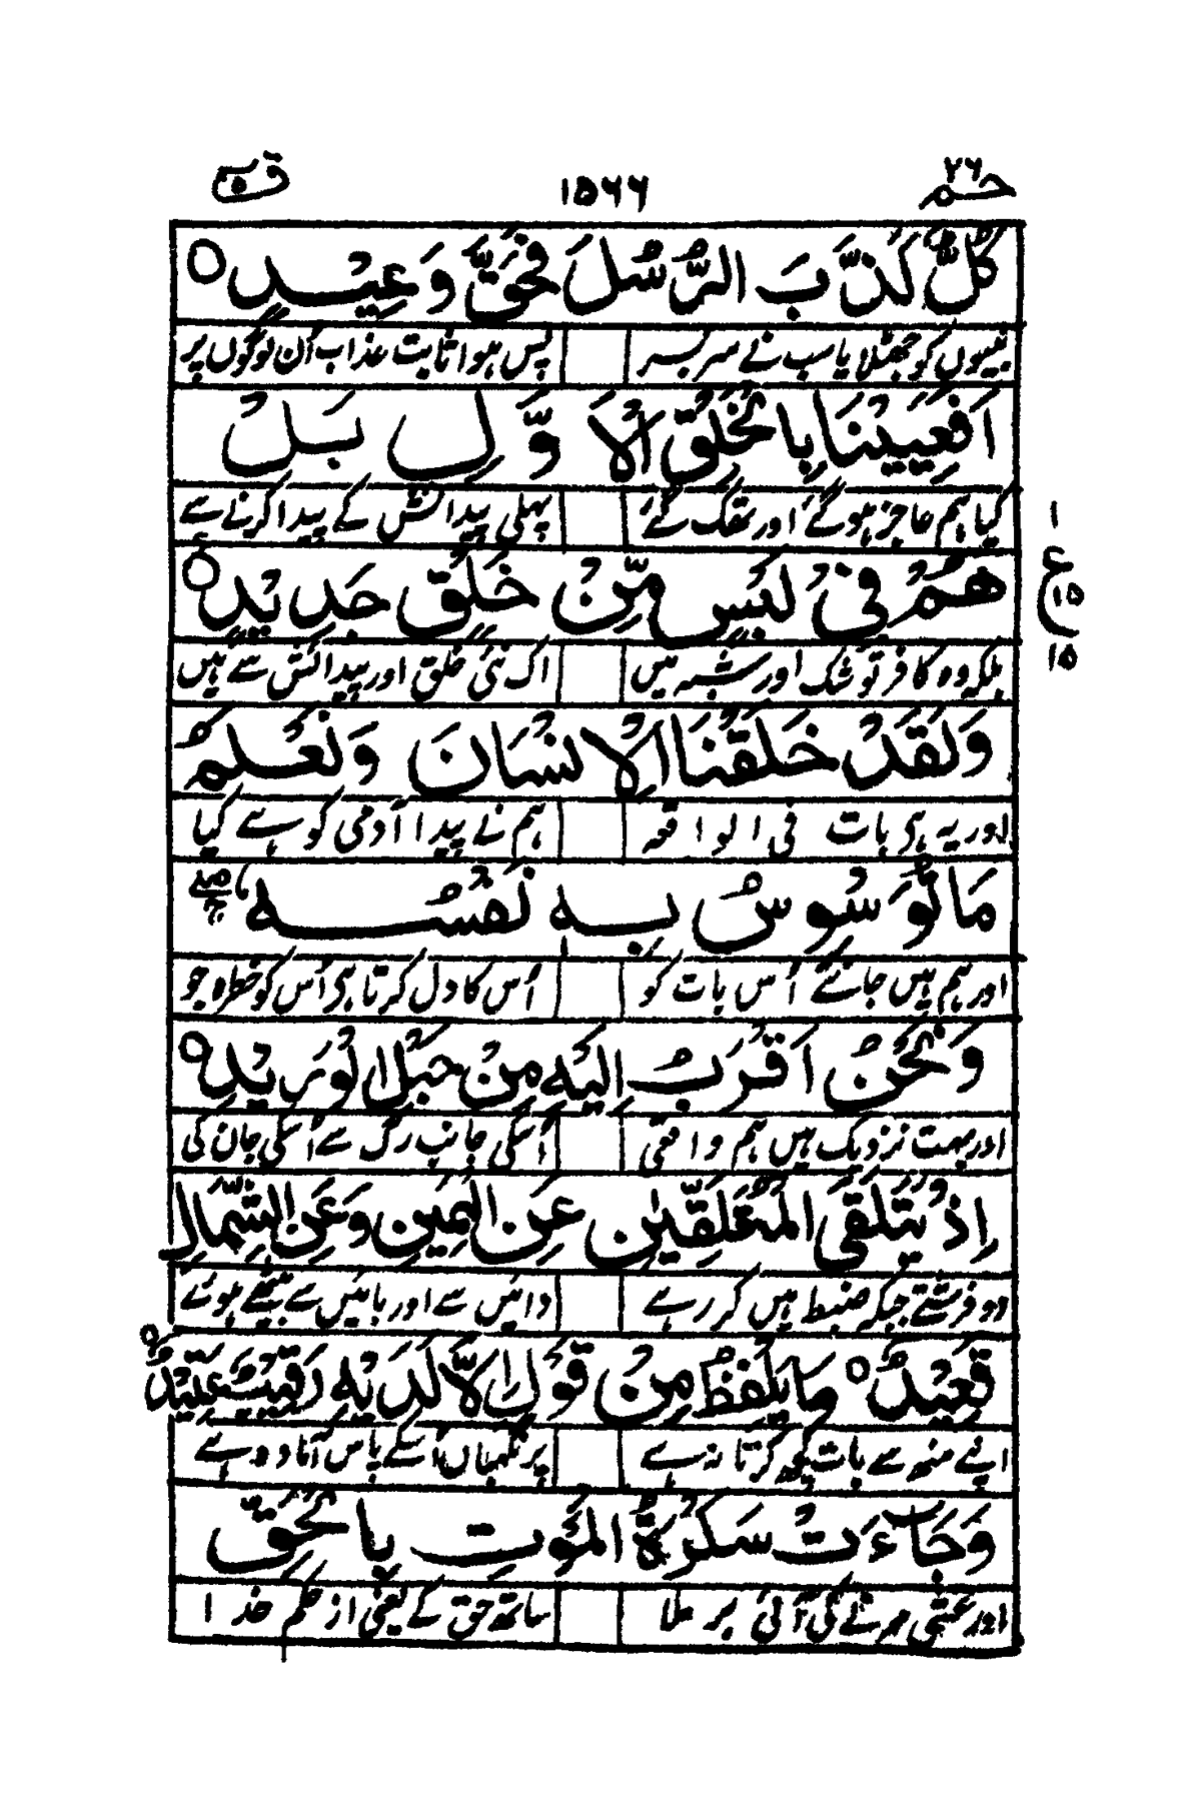 حٰم ۲۶
۱۵۶۶
قٓ ۵۰
كُلٌّ كَذَّبَ الرُّسُلَ فَحَقَّ وَعِيْدِ ○
نبیوں کو جھٹلایا سب نے سر بسر پس ہوا ثابت عذاب اُن لوگوں پر
اَفَعَيِيْنَا بِالْخَلْقِ الْاَوَّلِ بَلْ
کیا ہم عاجز ہو گئے اور تھک گئے پہلی پیدائش کے پیدا کرنے سے
هُمْ فِيْ لَبْسٍ مِّنْ خَلْقٍ جَدِيْدٍ ○
۱
ع
۱۵
۱۵
بلکہ وہ کافر تو شک اور شبہ میں اک نئی خلق اور پیدائش سے ہیں
وَلَقَدْ خَلَقْنَا الْاِنْسَانَ وَنَعْلَمُ
اور یہ ہی بات فی الواقعہ ہم نے پیدا آدمی کو ہے کیا
مَا تُوَسْوِسُ بِهٖ نَفْسُهٗ
اور ہم ہیں جانتے اُس بات کو اُس کا دل کرتا ہی اُس کو خطرہ جو
وَنَحْنُ اَقْرَبُ اِلَيْهِ مِنْ حَبْلِ الْوَرِيْدِ ○
اور بہت نزدیک ہیں ہم واقعی اُسکی جانب رگ سے اُسکی جان کی
اِذْ يَتَلَقَّى الْمُتَلَقِّيٰنِ عَنِ الْيَمِيْنِ وَعَنِ الشِّمَالِ
دو فرشتے جبکہ ضبط ہیں کر رہے دائیں سے اور بائیں سے بیٹھے ہوئے
قَعِيْدٌ ○ مَا يَلْفِظُ مِنْ قَوْلٍ اِلَّا لَدَيْهِ رَقِيْبٌ عَتِيْدٌ ○
اپنے منھ سے بات کچھ کرتا نہ ہے پر نگہباں اُسکے پاس آمادہ ہے
وَجَآءَتْ سَكْرَةُ الْمَوْتِ بِالْحَقِّ
اور سختی مرنے کی آئی بر ملا ساتھ حق کے یعنی از حکم خدا